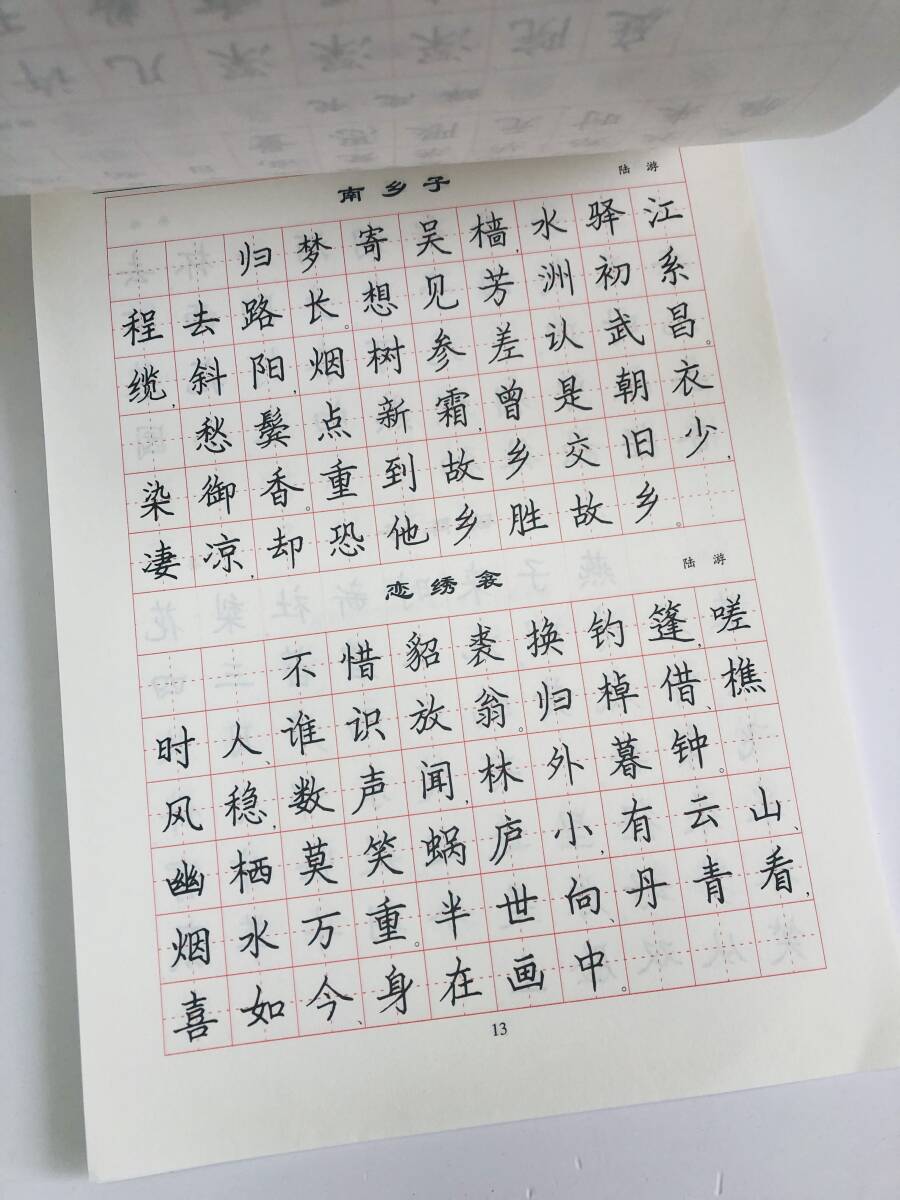 南乡子
陆游
归梦寄吴樯,水驿江
程去路长。想见芳洲初系
缆,斜阳,烟树参差认武昌。
愁鬓点新霜,曾是朝衣
染御香。重到故乡交旧少,
凄凉,却恐他乡胜故乡。
恋绣衾
陆游
不惜貂裘换钓篷,嗟
时人、谁识放翁。归棹借、樵
风稳,数声闻,林外暮钟。
幽栖莫笑蜗庐小,有云山、
烟水万重。半世向、丹青看,
喜如今、身在画中。
13